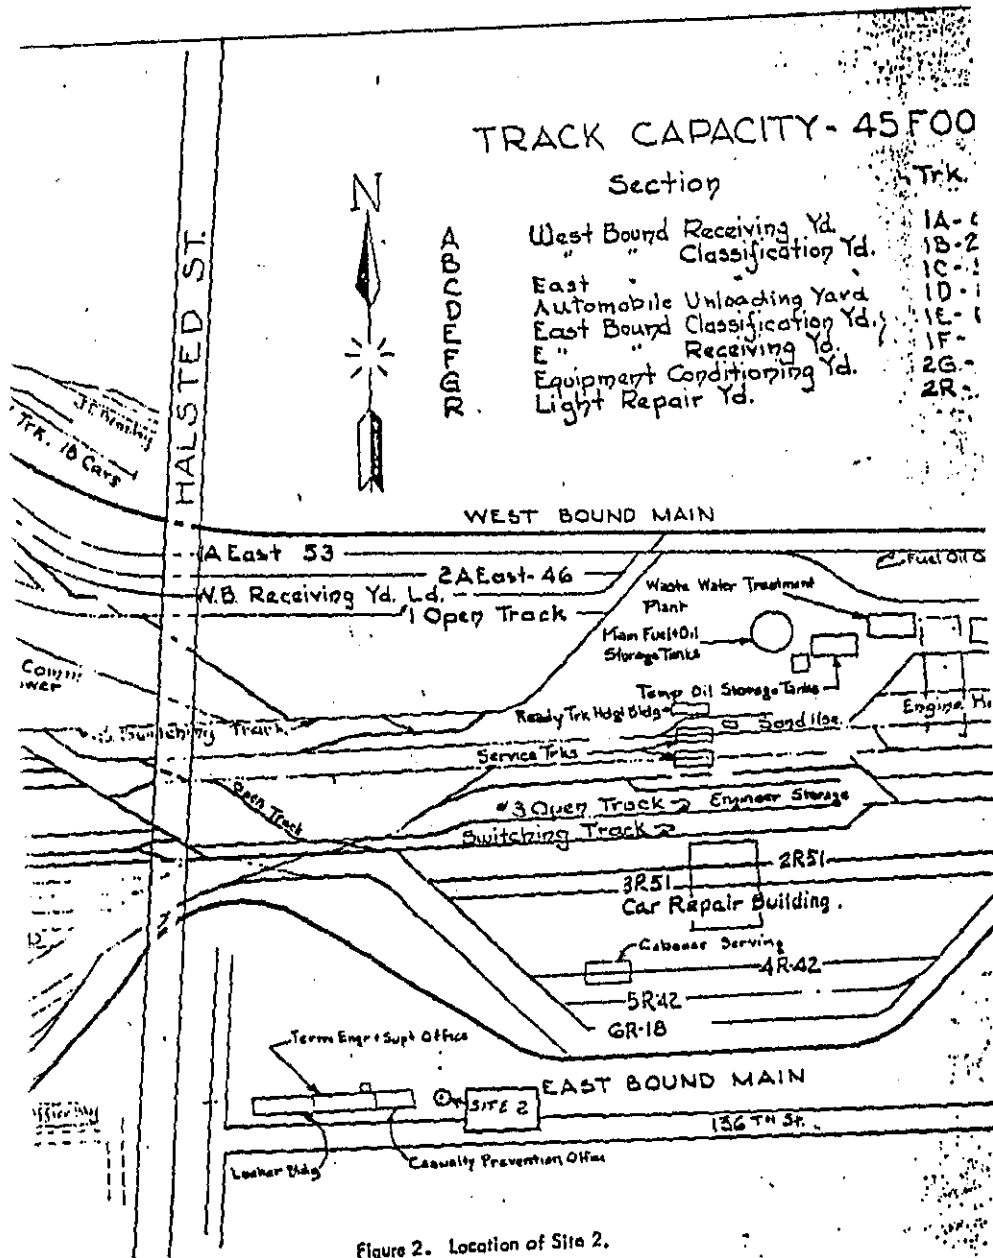 TRACK CAPACITY - 45 FOO
Section
Trk.
N
HALSTED ST.
A West Bound Receiving Yd. 1A-
B " " Classification Yd. 1B-2
C East " " 1C-
D Automobile Unloading Yard 1D-
E East Bound Classification Yd. 1E-
F E " " Receiving Yd. 1F-
G Equipment Conditioning Yd. 2G-
R Light Repair Yd. 2R-
Trk. 18 Cars
WEST BOUND MAIN
1A East 53
Fuel Oil
2A East-46
W.B. Receiving Yd. Ld.
1 Open Track
Waste Water Treatment
Plant
Main Fuel+Oil
Storage Tanks
Temp Oil Storage Tanks
Ready Trk Hdqt Bldg
Sand Hse.
Engine
Switching Track
Service Trks
Open Track
#3 Open Track
Engineer Storage
Switching Track
2R51
3R51
Car Repair Building.
Serving
4R-42
5R-42
6R-18
Term Engr + Supt Office
EAST BOUND MAIN
SITE 2
136TH St.
Locker Bldg
Casualty Prevention Office
Figure 2. Location of Site 2.